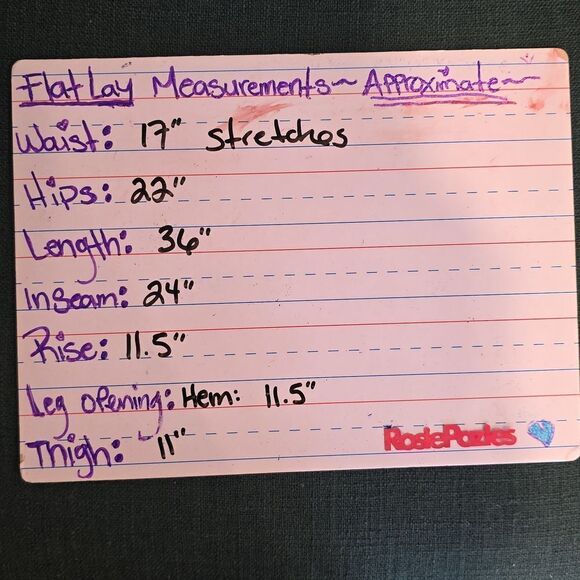 Flat Lay Measurements ~ Approximate ~
Waist: 17" Stretches
Hips: 22"
Length: 36"
Inseam: 24"
Rise: 11.5"
Leg opening: Hem: 11.5"
Thigh: 11"
RosiePozies